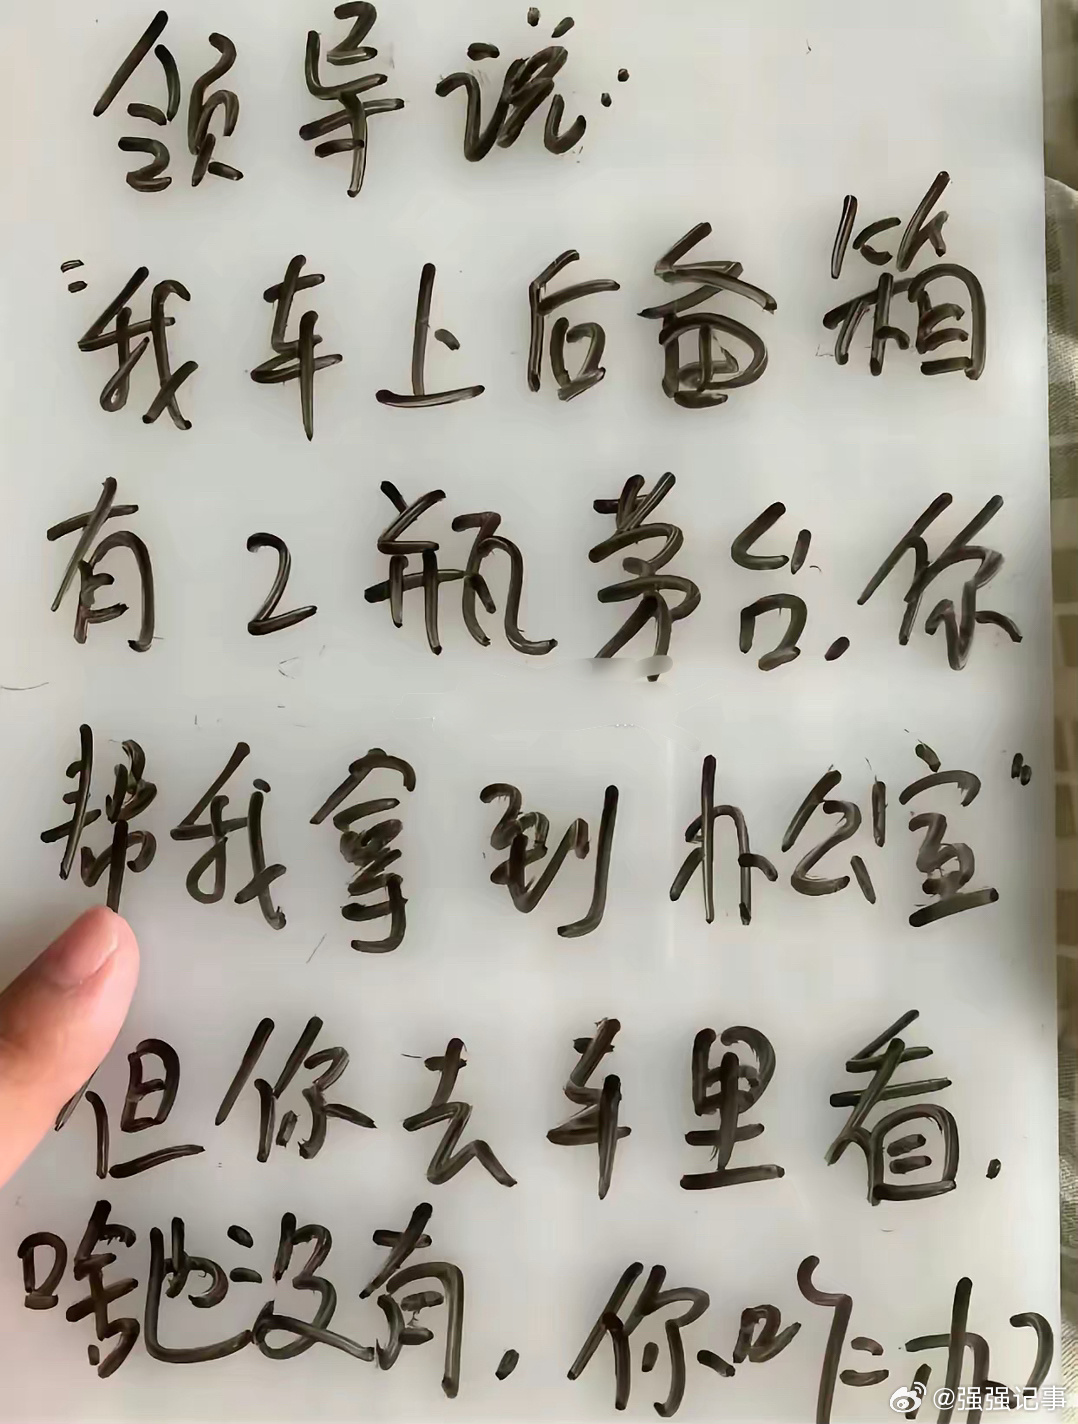 领导说:
"我车上后备箱
有2瓶茅台.你
帮我拿到办公室"
但你去车里看.
啥也没有.你咋办?
@强强记事